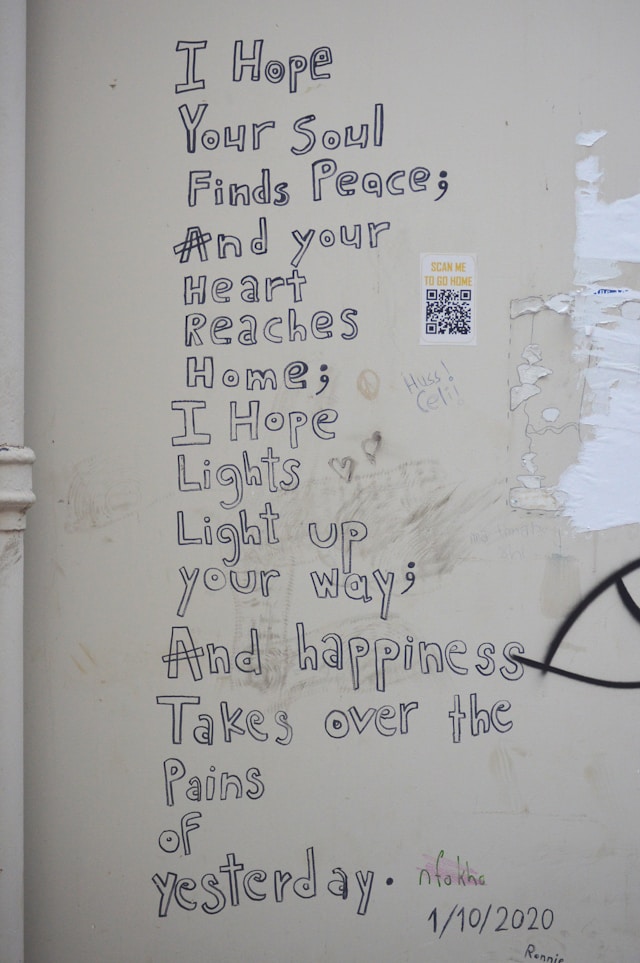 I Hope
Your Soul
Finds Peace;
And your
Heart
Reaches
Home;
I Hope
Lights
Light up
your way;
And happiness
Takes over the
Pains
of
yesterday.
SCAN ME
TO GO HOME
Huss!
Celi!
nfakha
1/10/2020
Ronnie